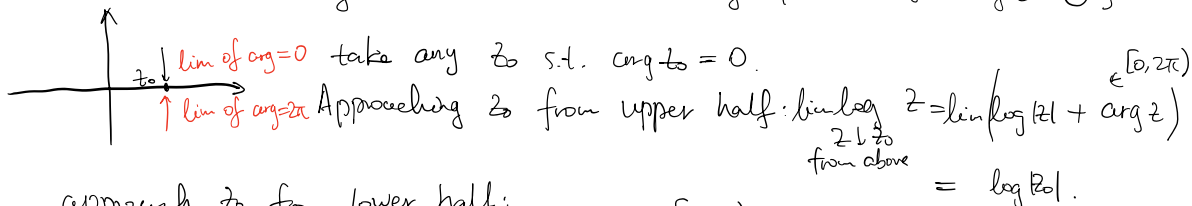 lim of arg=0 take any z₀ s.t. arg z₀ = 0.
z₀
[0, 2π)
∈
lim of arg=2π Approaching z₀ from upper half: lim log z = lim(log|z| + arg z)
z↓z₀
from above
= log|z₀|.
approach z₀ fro lower half: